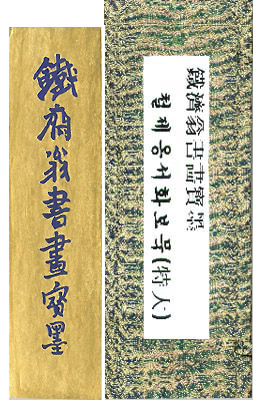 鐵齋翁書畫寶墨
鐵濟翁書畫寶墨
철제옹서화보묵(特大)